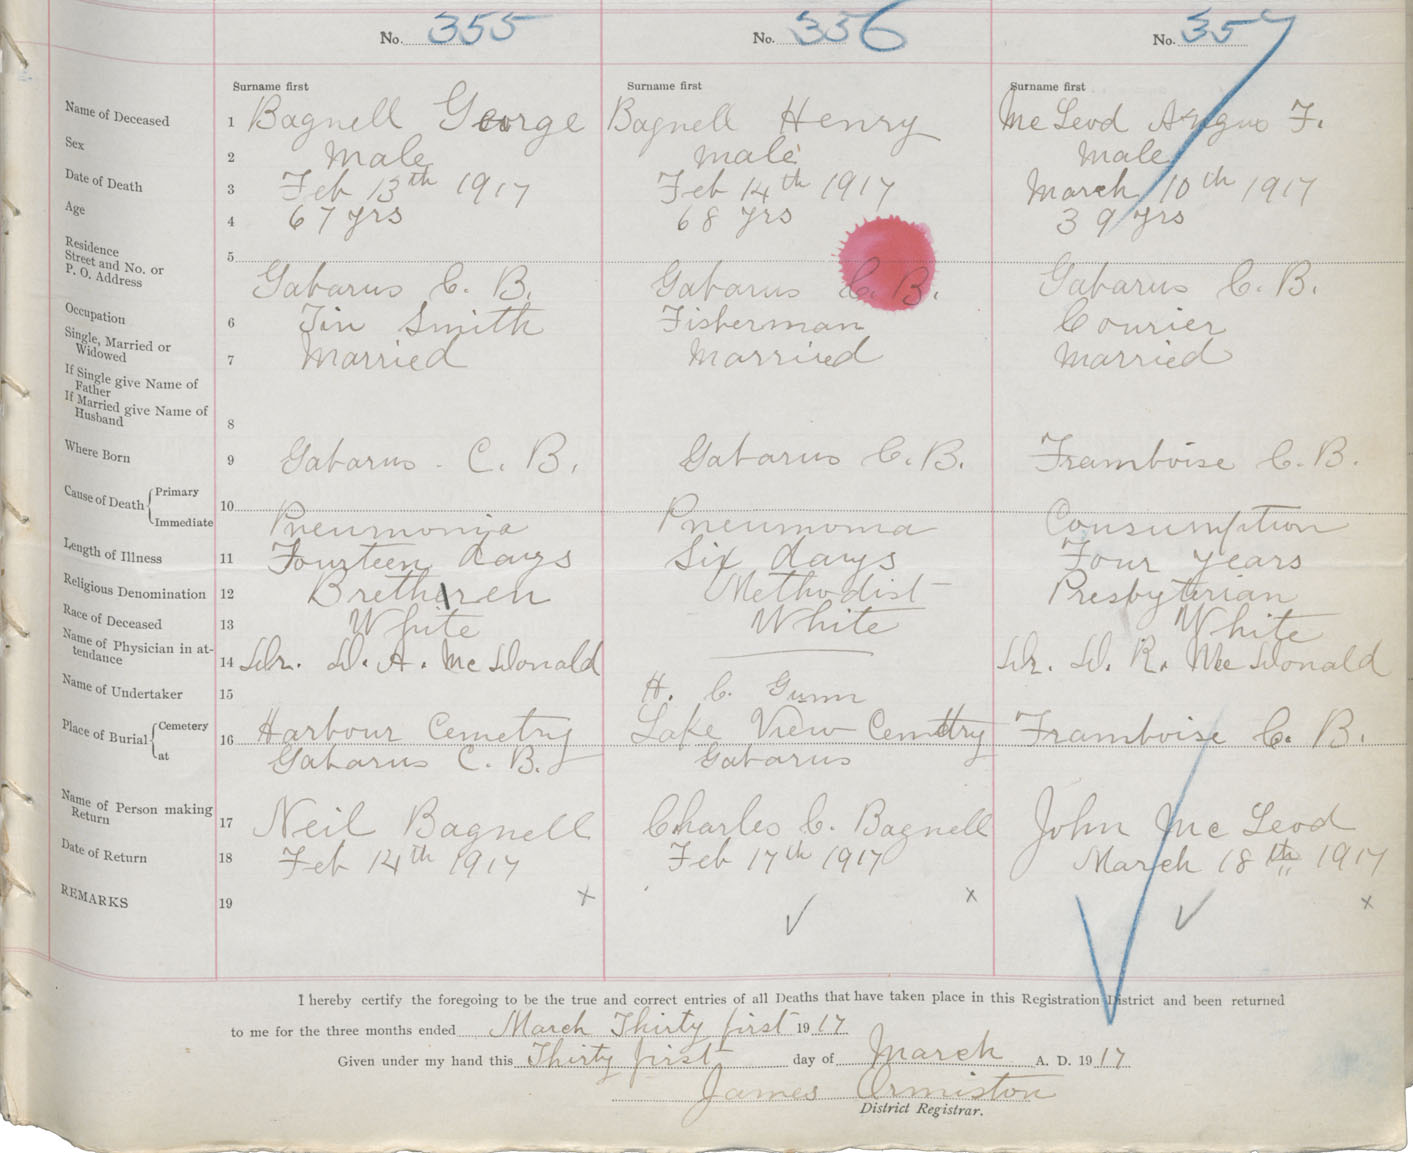 No. 355 No. 356 No. 357
Surname first Surname first Surname first
Name of Deceased 1 Bagnell George Bagnell Henry Mc Leod Angus F.
Sex 2 Male Male Male
Date of Death 3 Feb 13th 1917 Feb 14th 1917 March 10th 1917
Age 4 67 yrs 68 yrs 39 yrs
Residence
Street and No. or 5
P. O. Address Gabarus C. B. Gabarus C. B. Gabarus C. B.
Occupation 6 Tin Smith Fisherman Courier
Single, Married or
Widowed 7 Married Married Married
If Single give Name of
Father
If Married give Name of
Husband 8
Where Born 9 Gabarus - C. B. Gabarus C. B. Framboise C. B.
Cause of Death Primary
10
Immediate Pneumonia Pneumonia Consumption
Length of Illness 11 Fourteen days Six days Four years
Religious Denomination 12 Bretheren Methodist Presbyterian
Race of Deceased 13 White White White
Name of Physician in at-
tendance 14 Dr. D. A. Mc Donald Dr. D. R. Mc Donald
Name of Undertaker 15 H. C. Gunn
Place of Burial Cemetery 16 Harbour Cemetry Lake View Cemettry Framboise C. B.
at Gabarus C. B. Gabarus
Name of Person making
Return 17 Neil Bagnell Charles C. Bagnell John Mc Leod
Date of Return 18 Feb 14th 1917 Feb 17th 1917 March 18th 1917
REMARKS 19 x x x
I hereby certify the foregoing to be the true and correct entries of all Deaths that have taken place in this Registration District and been returned
to me for the three months ended March Thirty first 1917
Given under my hand this Thirty first day of March A. D. 1917
James Ormiston
District Registrar.